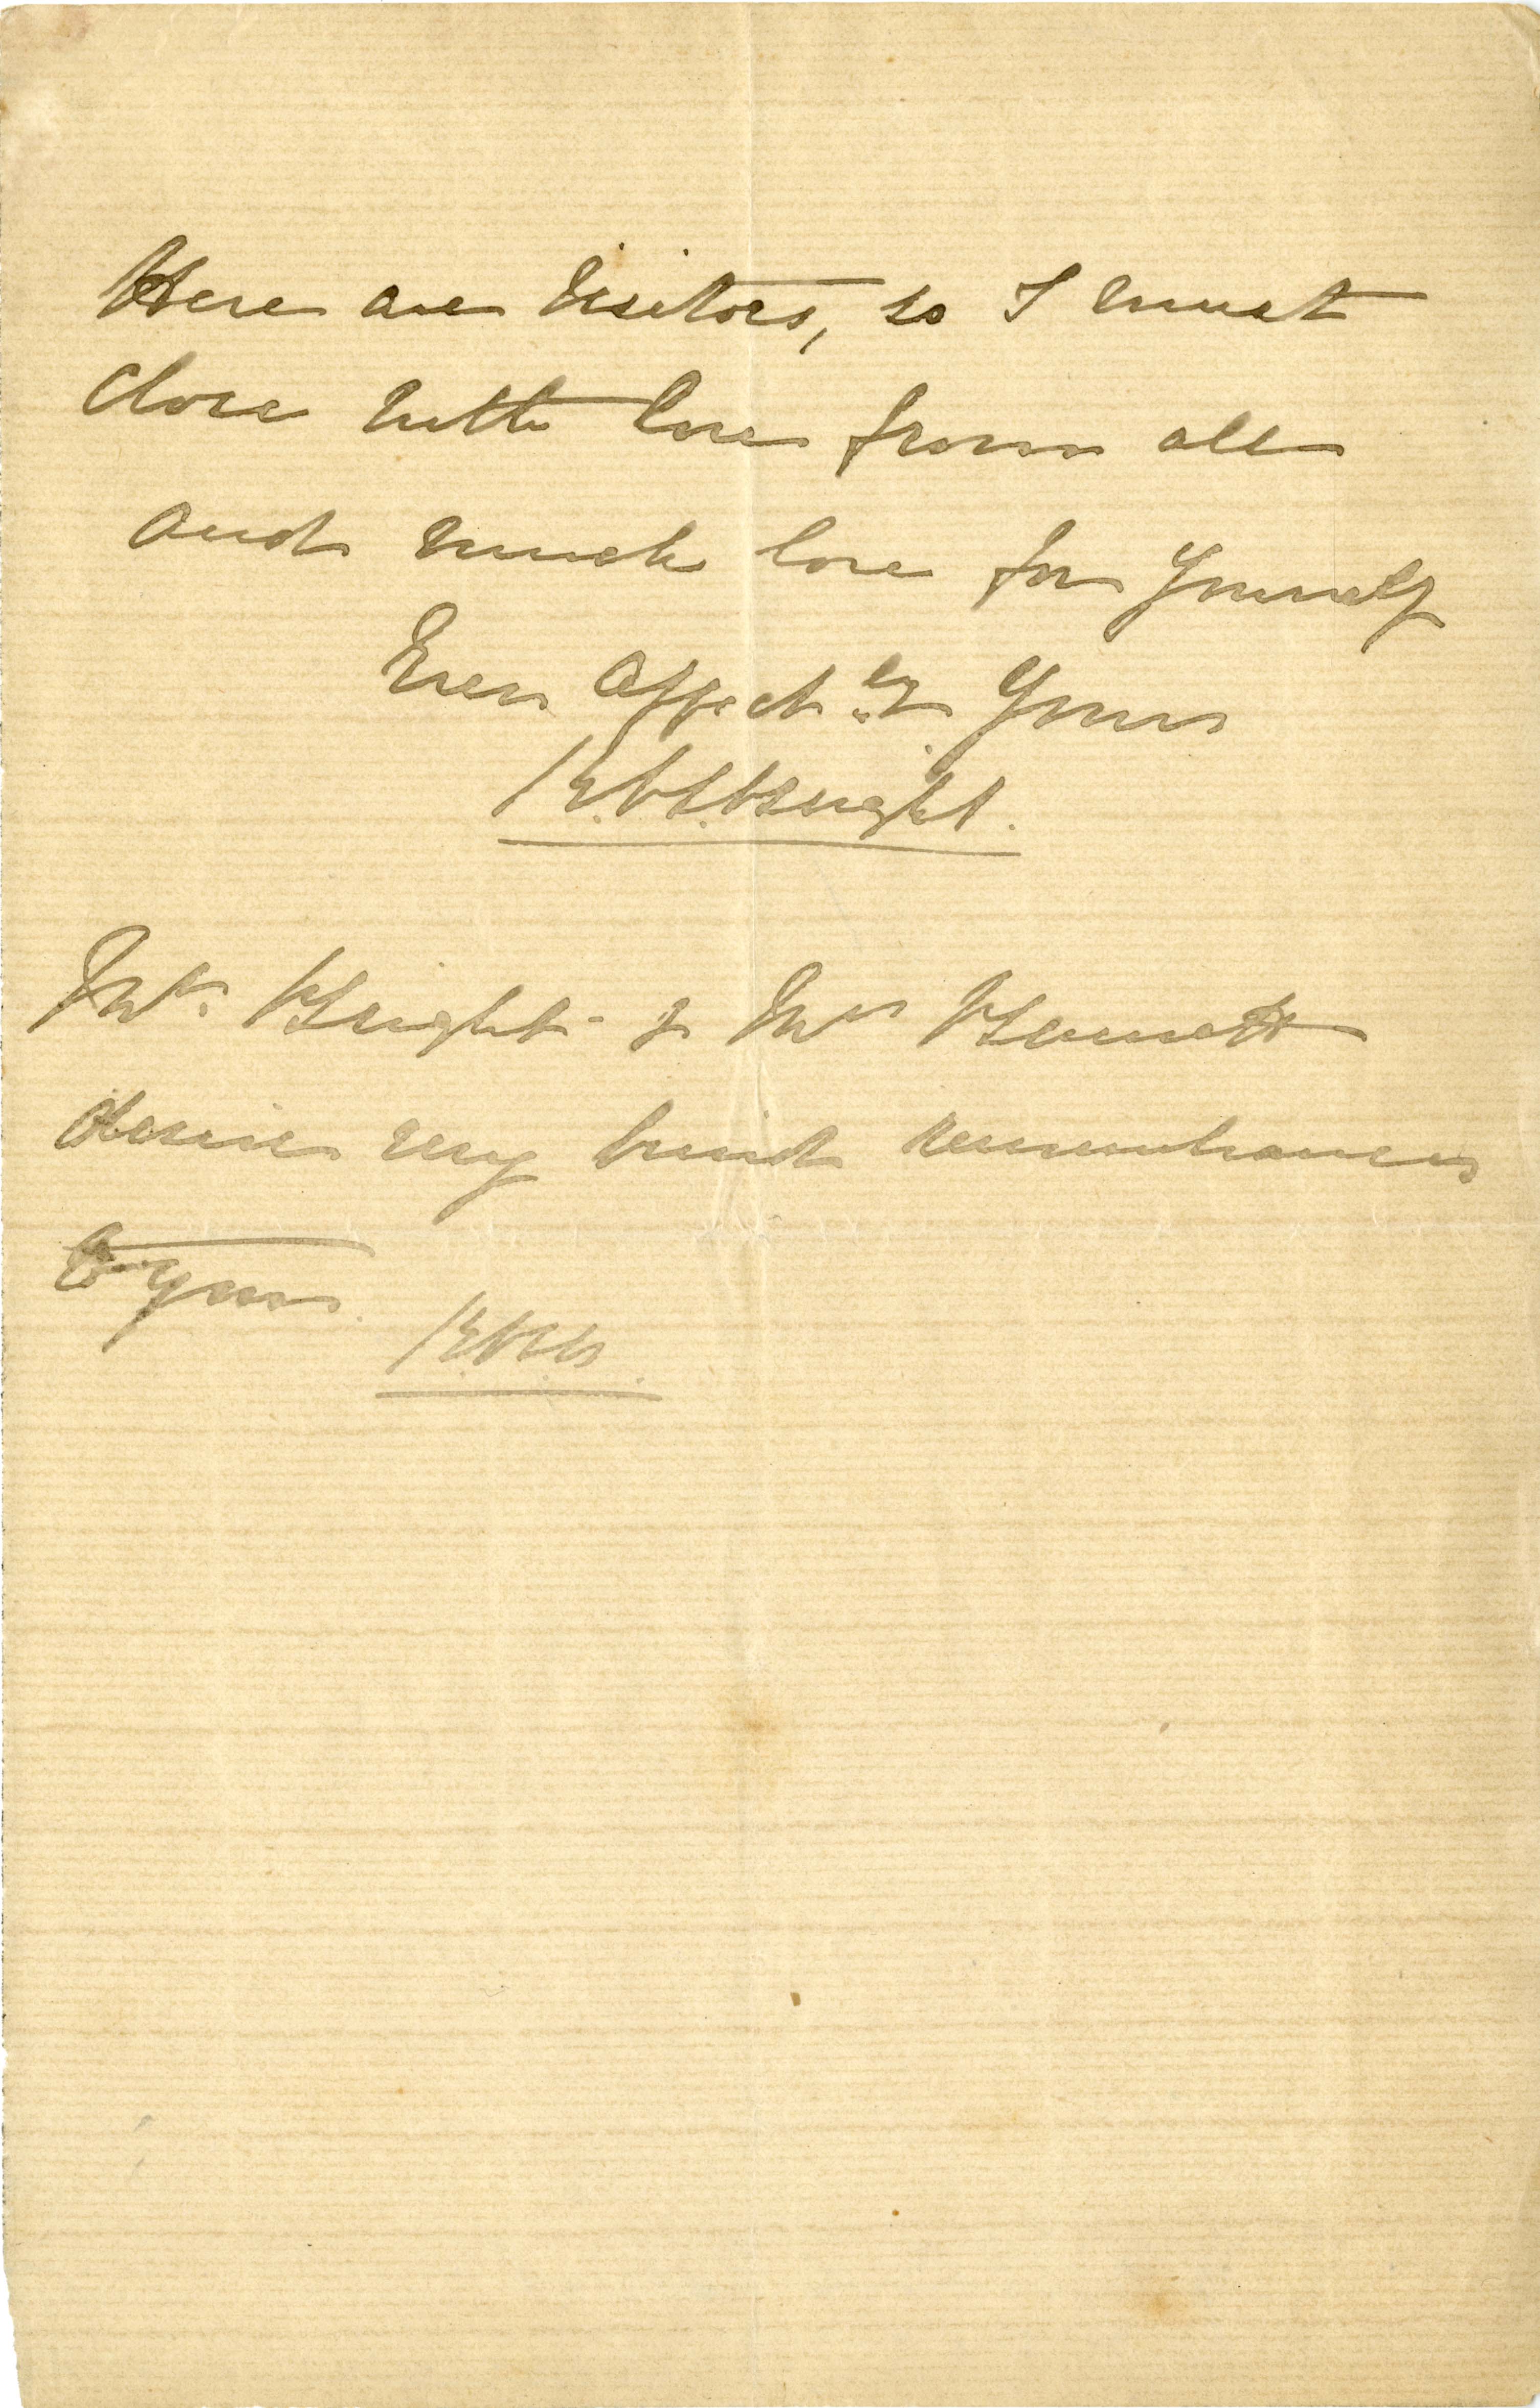 Here are visitors, so I must
close with love from all
and much love for yourself
Ever affectly yours
Mr. Bright & Mrs Bennett
desire very kind remembrances
to you.